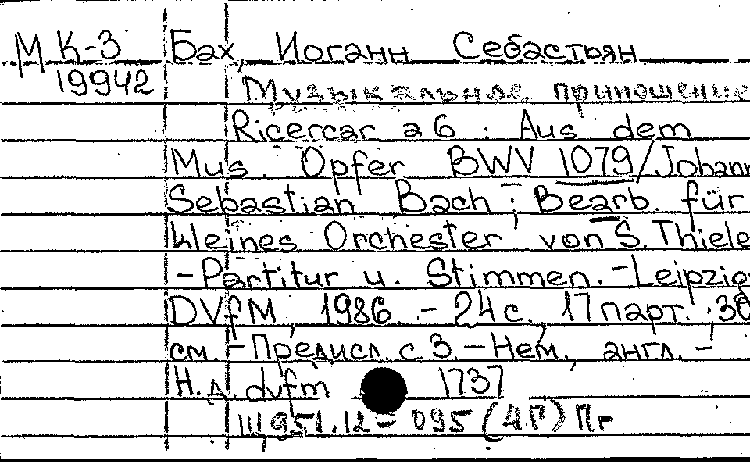 М К-3 Бах, Иоганн Себастьян
19942 Музыкальное приношение
Ricercar a 6 : Aus dem
Mus. Opfer BWV 1079/Johann
Sebastian Bach ; Bearb. für
kleines Orchester von S. Thiele
-Partitur u. Stimmen. -Leipzig
DVfM, 1986. - 24 с., 17 парт. 30
см. -Предисл. с. 3. - Нем., англ. -
Н.д. dvfm 1737
951.12 - 095 (4Г) Пг